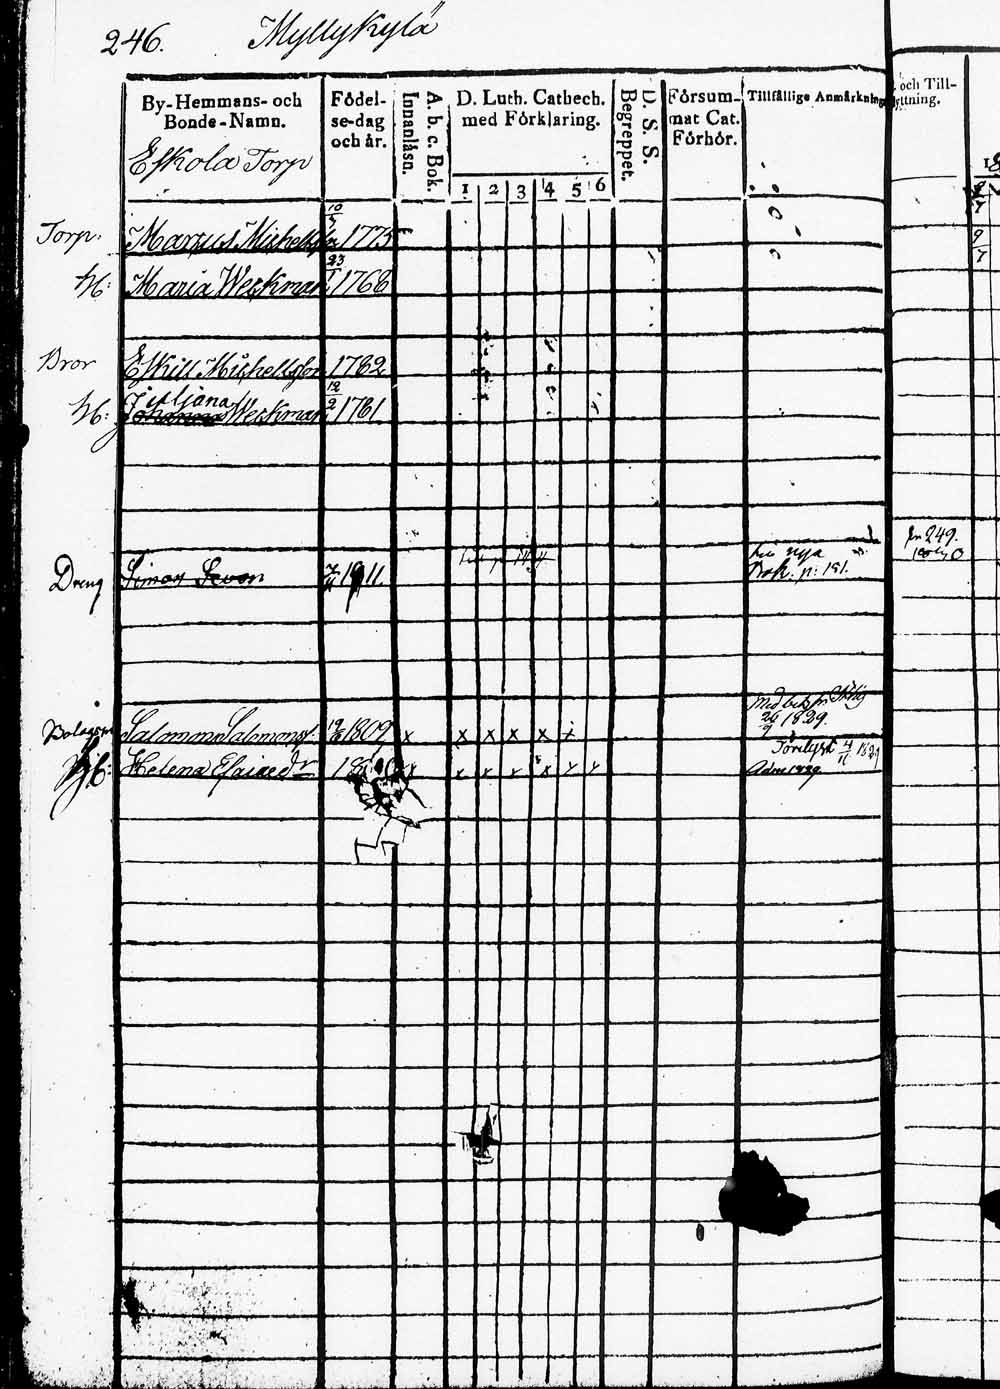 246. Myllykylä
By-Hemmans- och
Bonde-Namn.
Eskola Torp
Födel-
se-dag
och år.
Innanläsn.
A. b. c. Bok.
D. Luth. Cathech.
med Förklaring.
1 2 3 4 5 6
D. S. S.
Begreppet.
Försum-
mat Cat.
Förhör.
Tillfällige Anmärkning
och Till-
yttning.
Torp. Marcus Michelss: 10/7 1775
H: Maria Weckman 23/1 1768
Bror Eskill Michellss 1782
H: Juliana Weckman 12/2 1781
Dreng Simon Sevon 1811. nya
Bok. p: 181.
fr 249.
Bolagsm Salomon Salomonss: 1809 x x x x x x Med bet. fr
26/9 1829.
H: Helena Esaiaedr 18 x x x x x x x 4/11 1829
Adm 1829.